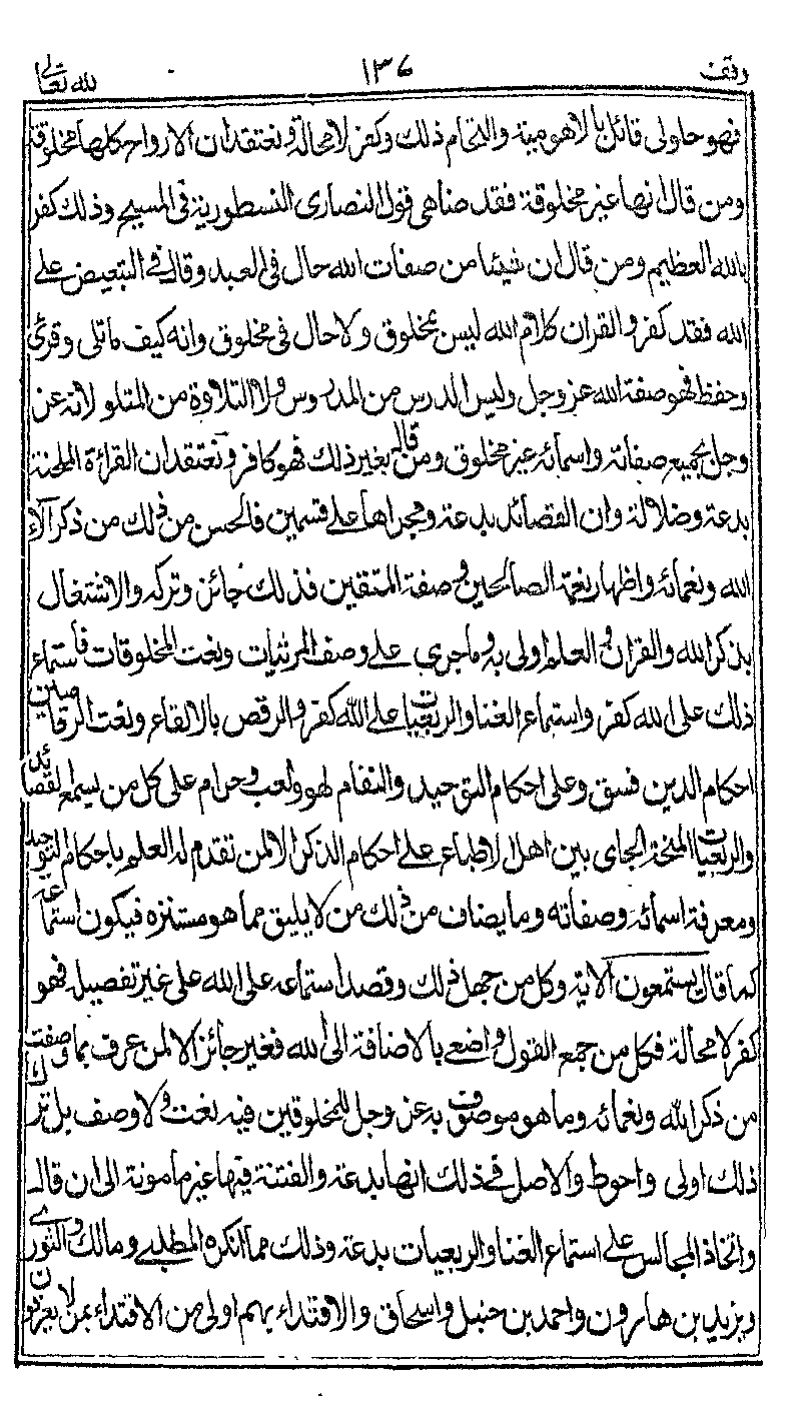 وقف ١٣٦ لله تعالى
فهو حلولى قائل بالاهومية والالتحام ذلك وكفر لا محالة ونعتقد ان الارواح كلها مخلوقة
ومن قال انها غير مخلوقة فقد ضاهى قول النصارى النسطورية فى المسيح وذلك كفر
بالله العظيم ومن قال ان شيئا من صفات الله حال فى العبد وقال فى التبعيض على
الله فقد كفر والقران كلام الله ليس بمخلوق ولا حال فى مخلوق وانه كيف ما تلى وقرئ
وحفظ فهو صفة الله عز وجل وليس الدرس من المدروس ولا التلاوة من المتلو لانه عز
وجل بجميع صفاته واسمائه غير مخلوق ومن قال بغير ذلك فهو كافر ونعتقد ان القراءة الملحنة
بدعة وضلالة وان القصائد بدعة ومجراها على قسمين فالحسن من ذلك من ذكر آلاء
الله ونعمائه واظهار نعت الصالحين وصفة المتقين فذلك جائز وتركه والاشتغال
بذكر الله والقران والعلم اولى به وما جرى على وصف المرئيات ونعت المخلوقات فاستماع
ذلك على الله كفر واستماع الغنا والربعيات على الله كفر والرقص بالايقاع ونعت الرقاصين
احكام الدين فسق وعلى احكام التوحيد والنغام لهو ولعب وحرام على كل من يسمع القصائد
والربعيات الملحنة الجاى بين اهل الاطباع على احكام الذكر الا لمن تقدم له العلم باحكام التوحيد
ومعرفة اسمائه وصفاته وما يضاف من ذلك من لا يليق مما هو مستنزه فيكون استماعه
كما قال يستمعون الآية وكل من جهل ذلك وقصد استماعه على الله على غير تفصيل فهو
كفر لا محالة فكل من جمع القول واضعى بالاضافة الى الله فغير جائز الا لمن عرف بما وصفت
من ذكر الله ونعمائه وما هو موصوف به عز وجل للمخلوقين فيه نعت ولا وصف بل ترك
ذلك اولى واحوط والاصل فى ذلك انها بدعة والفتنة فيها غير مامونة الى ان قال
واتخاذ المجالس على استماع الغنا والربعيات بدعة وذلك مما انكره المطلبى ومالك والثورى
ويزيد بن هارون واحمد بن حنبل واسحاق والاقتداء بهم اولى من الاقتداء بمن لا يعرفون